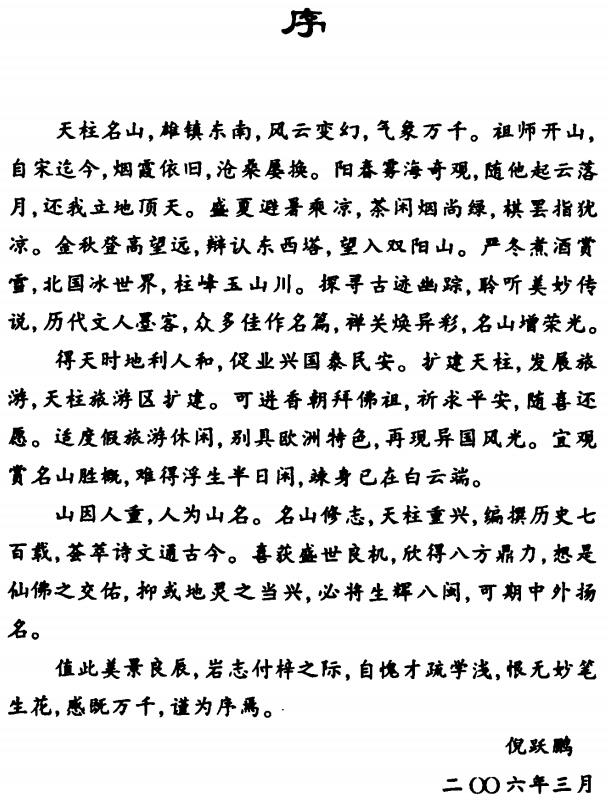 序
天柱名山,雄镇东南,风云变幻,气象万千。祖师开山,
自宋迄今,烟霞依旧,沧桑屡换。阳春雾海奇观,随他起云落
月,还我立地顶天。盛夏避暑乘凉,茶闲烟尚绿,棋罢指犹
凉。金秋登高望远,辩认东西塔,望入双阳山。严冬煮酒赏
雪,北国冰世界,柱峰玉山川。探寻古迹幽踪,聆听美妙传
说,历代文人墨客,众多佳作名篇,禅关焕异彩,名山增荣光。
得天时地利人和,促业兴国泰民安。扩建天柱,发展旅
游,天柱旅游区扩建。可进香朝拜佛祖,祈求平安,随喜还
愿。适度假旅游休闲,别具欧洲特色,再现异国风光。宜观
赏名山胜概,难得浮生半日闲,竦身已在白云端。
山因人重,人为山名。名山修志,天柱重兴,编撰历史七
百载,荟萃诗文通古今。喜获盛世良机,欣得八方鼎力,想是
仙佛之交佑,抑或地灵之当兴,必将生辉八闽,可期中外扬
名。
值此美景良辰,岩志付梓之际,自愧才疏学浅,恨无妙笔
生花,感既万千,谨为序焉。
倪跃鹏
二〇〇六年三月